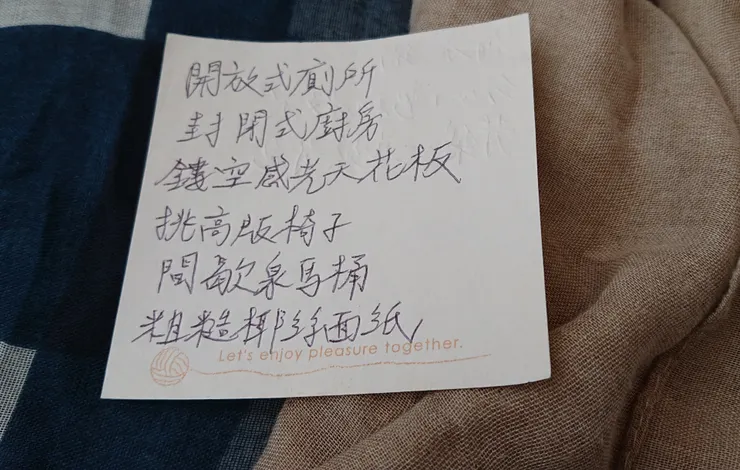 開放式廁所
封閉式廚房
鏤空感光天花板
挑高版椅子
間歇泉馬桶
粗糙椰絲面紙
Let's enjoy pleasure together.